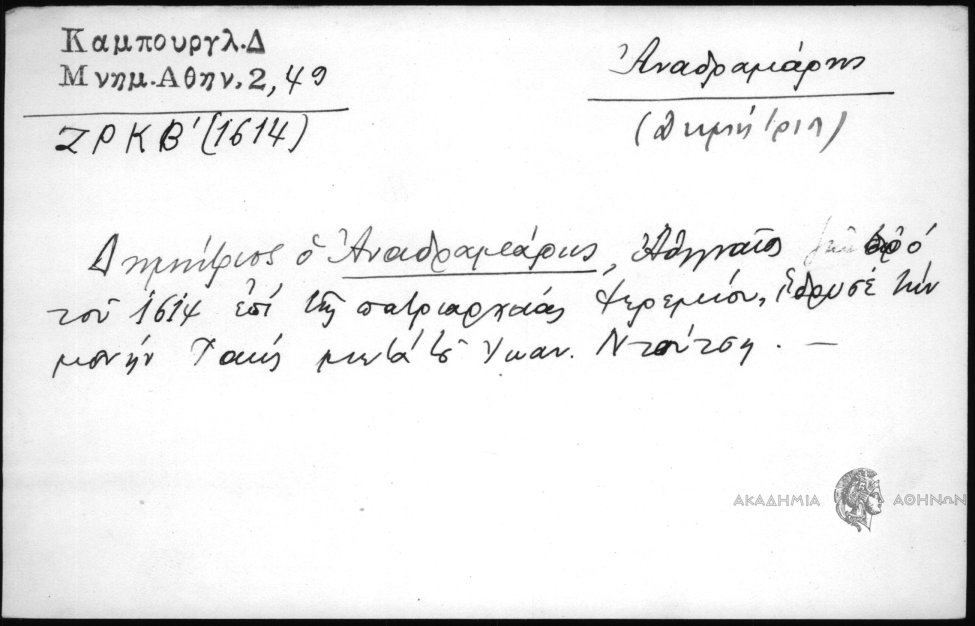 Καμπουργλ.Δ
Μνημ.Αθην.2,49
ΖΡΚΒ' (1614)
Ἀναδραμιάρης
(Δημήτριος)
Δημήτριος ὁ Ἀναδραμιάρης, Ἀθηναῖος πρό
τοῦ 1614 ἐπί τῆς πατριαρχείας Ἱερεμίου, ἵδρυσε τήν
μονήν μετά τοῦ Ἰωαν. Ντούτση. —
ΑΚΑΔΗΜΙΑ ΑΘΗΝΩΝ